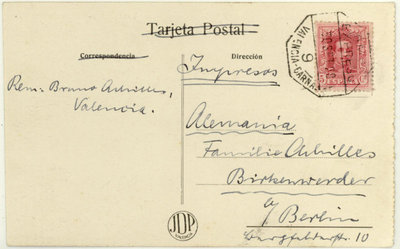 Tarjeta Postal
Correspondencia
Dirección
Impresos
Rem. Bruno Achilles,
Valencia.
Alemania
Familie Achilles
Birkenwerder
a/ Berlin
Bergfelderstr 10
VALENCIA-CABAÑAL
9
JDP
VALENCIA